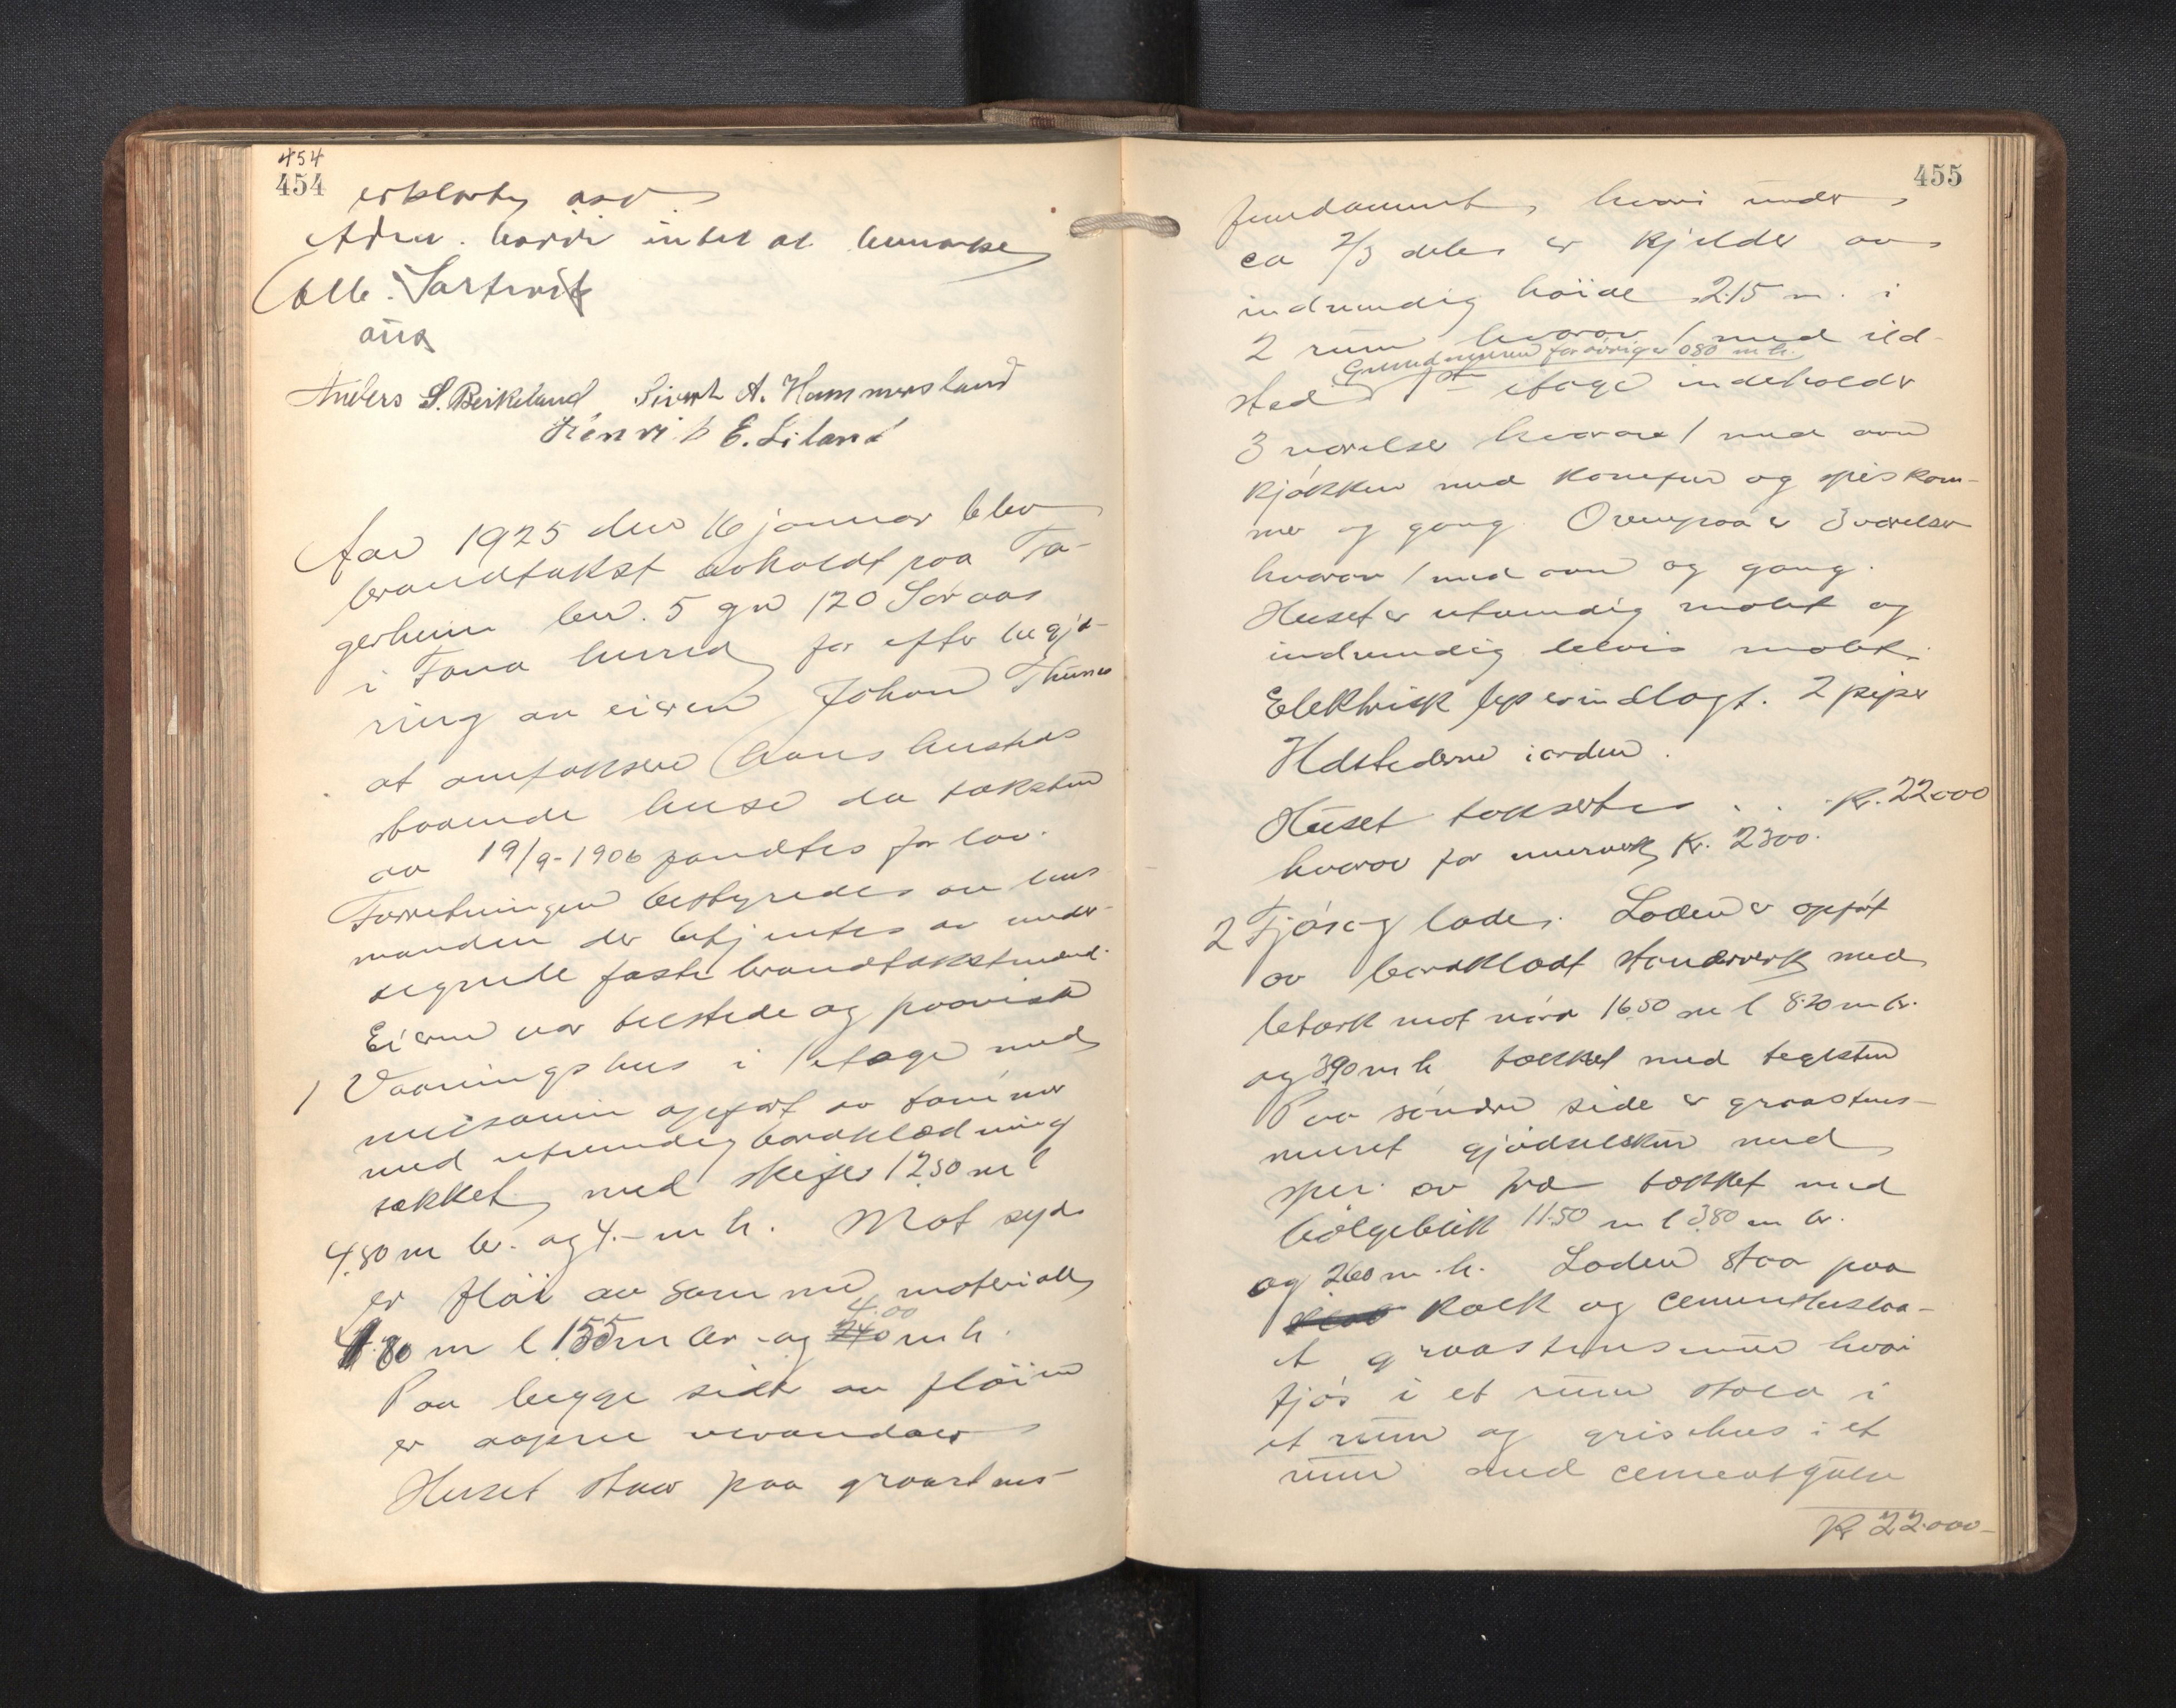 454
454
erklært
Adm. hadde intet at bemærke
Anders S. Birkeland Sivert A. Hammersland
Henrik E. Liland
Aar 1925 den 16 januar blev
brandtakst avholdt paa Fa-
gerheim br. 5 gn 120 Søraas
i Fana herred for efter begjæ-
ring av eieren Johan Thunes
at omtaksere hans hustas
staaende huse da taksten
av 19/9-1906 fandtes for lav.
Forretningen bestyredes av lens
manden der betjentes av under-
tegnede faste brandtakstmænd.
Eieren var tilstede og paaviste
1 Vaaningshus i 1 etage med
midsanin opført av tømmer
med utvendig bordklædning
tækket med skifer 12.50 m l
4.80 m br. og 4.– m h. Mot syd
er fløi av samme materiale
4.00
1.80 m l 1.55 m br. og 240 m h.
Paa begge sider av fløien
er aapne verandaer
Huset staar paa graastens-
455
fundament, hvori under
ca 2/3 deler er kjelder av
indvendig høide 2.15 m. i
2 rum hvorav 1 med ild-
Grundmuren forøvrig er 080 m h.
sted 1ste etage indeholder
3 værelser hvorav 1 med ovn
kjøkken med komfur og spiskam-
mer og gang. Ovenpaa er 3 værelser
hvorav 1 med ovn og gang.
Huset er utvendig malt og
indvendig delvis malt.
Elektrisk lys er indlagt. 2 piper
Ildstederne i orden.
Huset takseres . . . kr. 22000
hvorav for murverk kr. 2300.
2 Fjøs og lade. Laden er opført
av bordklædt stenderverk med
letærk mot nord 16.50 m l 8.20 m br.
og 3.90 m h tækket med teglsten
Paa søndre side er graastens-
muret gjødselskur med
sper. av træ tækket med
bølgeblik 11.50 m l 3.80 m br.
og 260 m. h. Laden staar paa
kalk og cementpusta-
et graastensmur hvori
fjøs i et rum stald i
et rum og grisehus i et
rum med cementgulv
Kr 22.000-